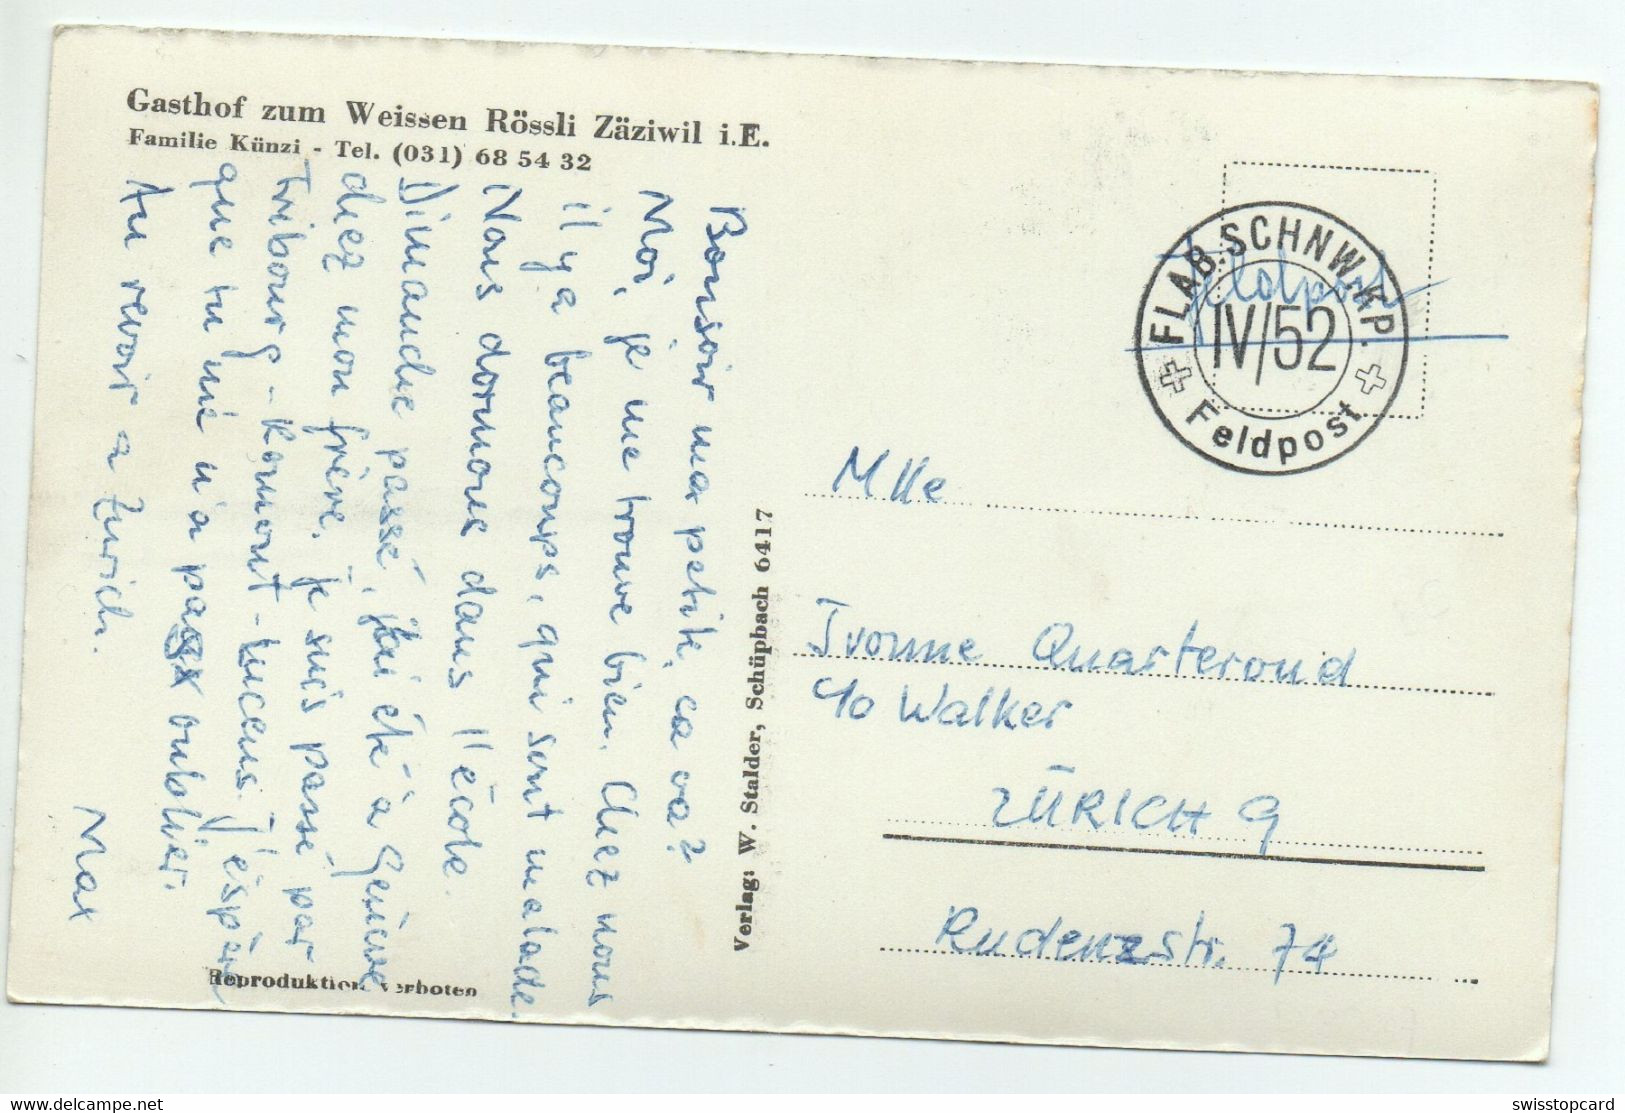 Gasthof zum Weissen Rössli Zäziwil i.E.
Familie Künzi - Tel. (031) 68 54 32
Bonsoir ma petite, ca va?
Moi, je me trouve bien. Chez nous
il y a beaucoups, qui sont malade.
Nous dormons dans l'école.
Dimanche passé, j'ai été à Genève
chez mon frère. Je suis passé par
Fribourg - Romont - Lucens. J'éspère
que tu me n'a pas oublier.
Au revoir a Zürich.
Max
Reproduktion verboten
Verlag: W. Stalder, Schüpbach 6417
Feldpost
FLAB. SCHNW. KP.
IV/52
Feldpost
Mlle
Ivonne Quarteroud
c/o Walker
ZÜRICH 9
Rudenzstr. 74
www.delcampe.net
swisstopcard